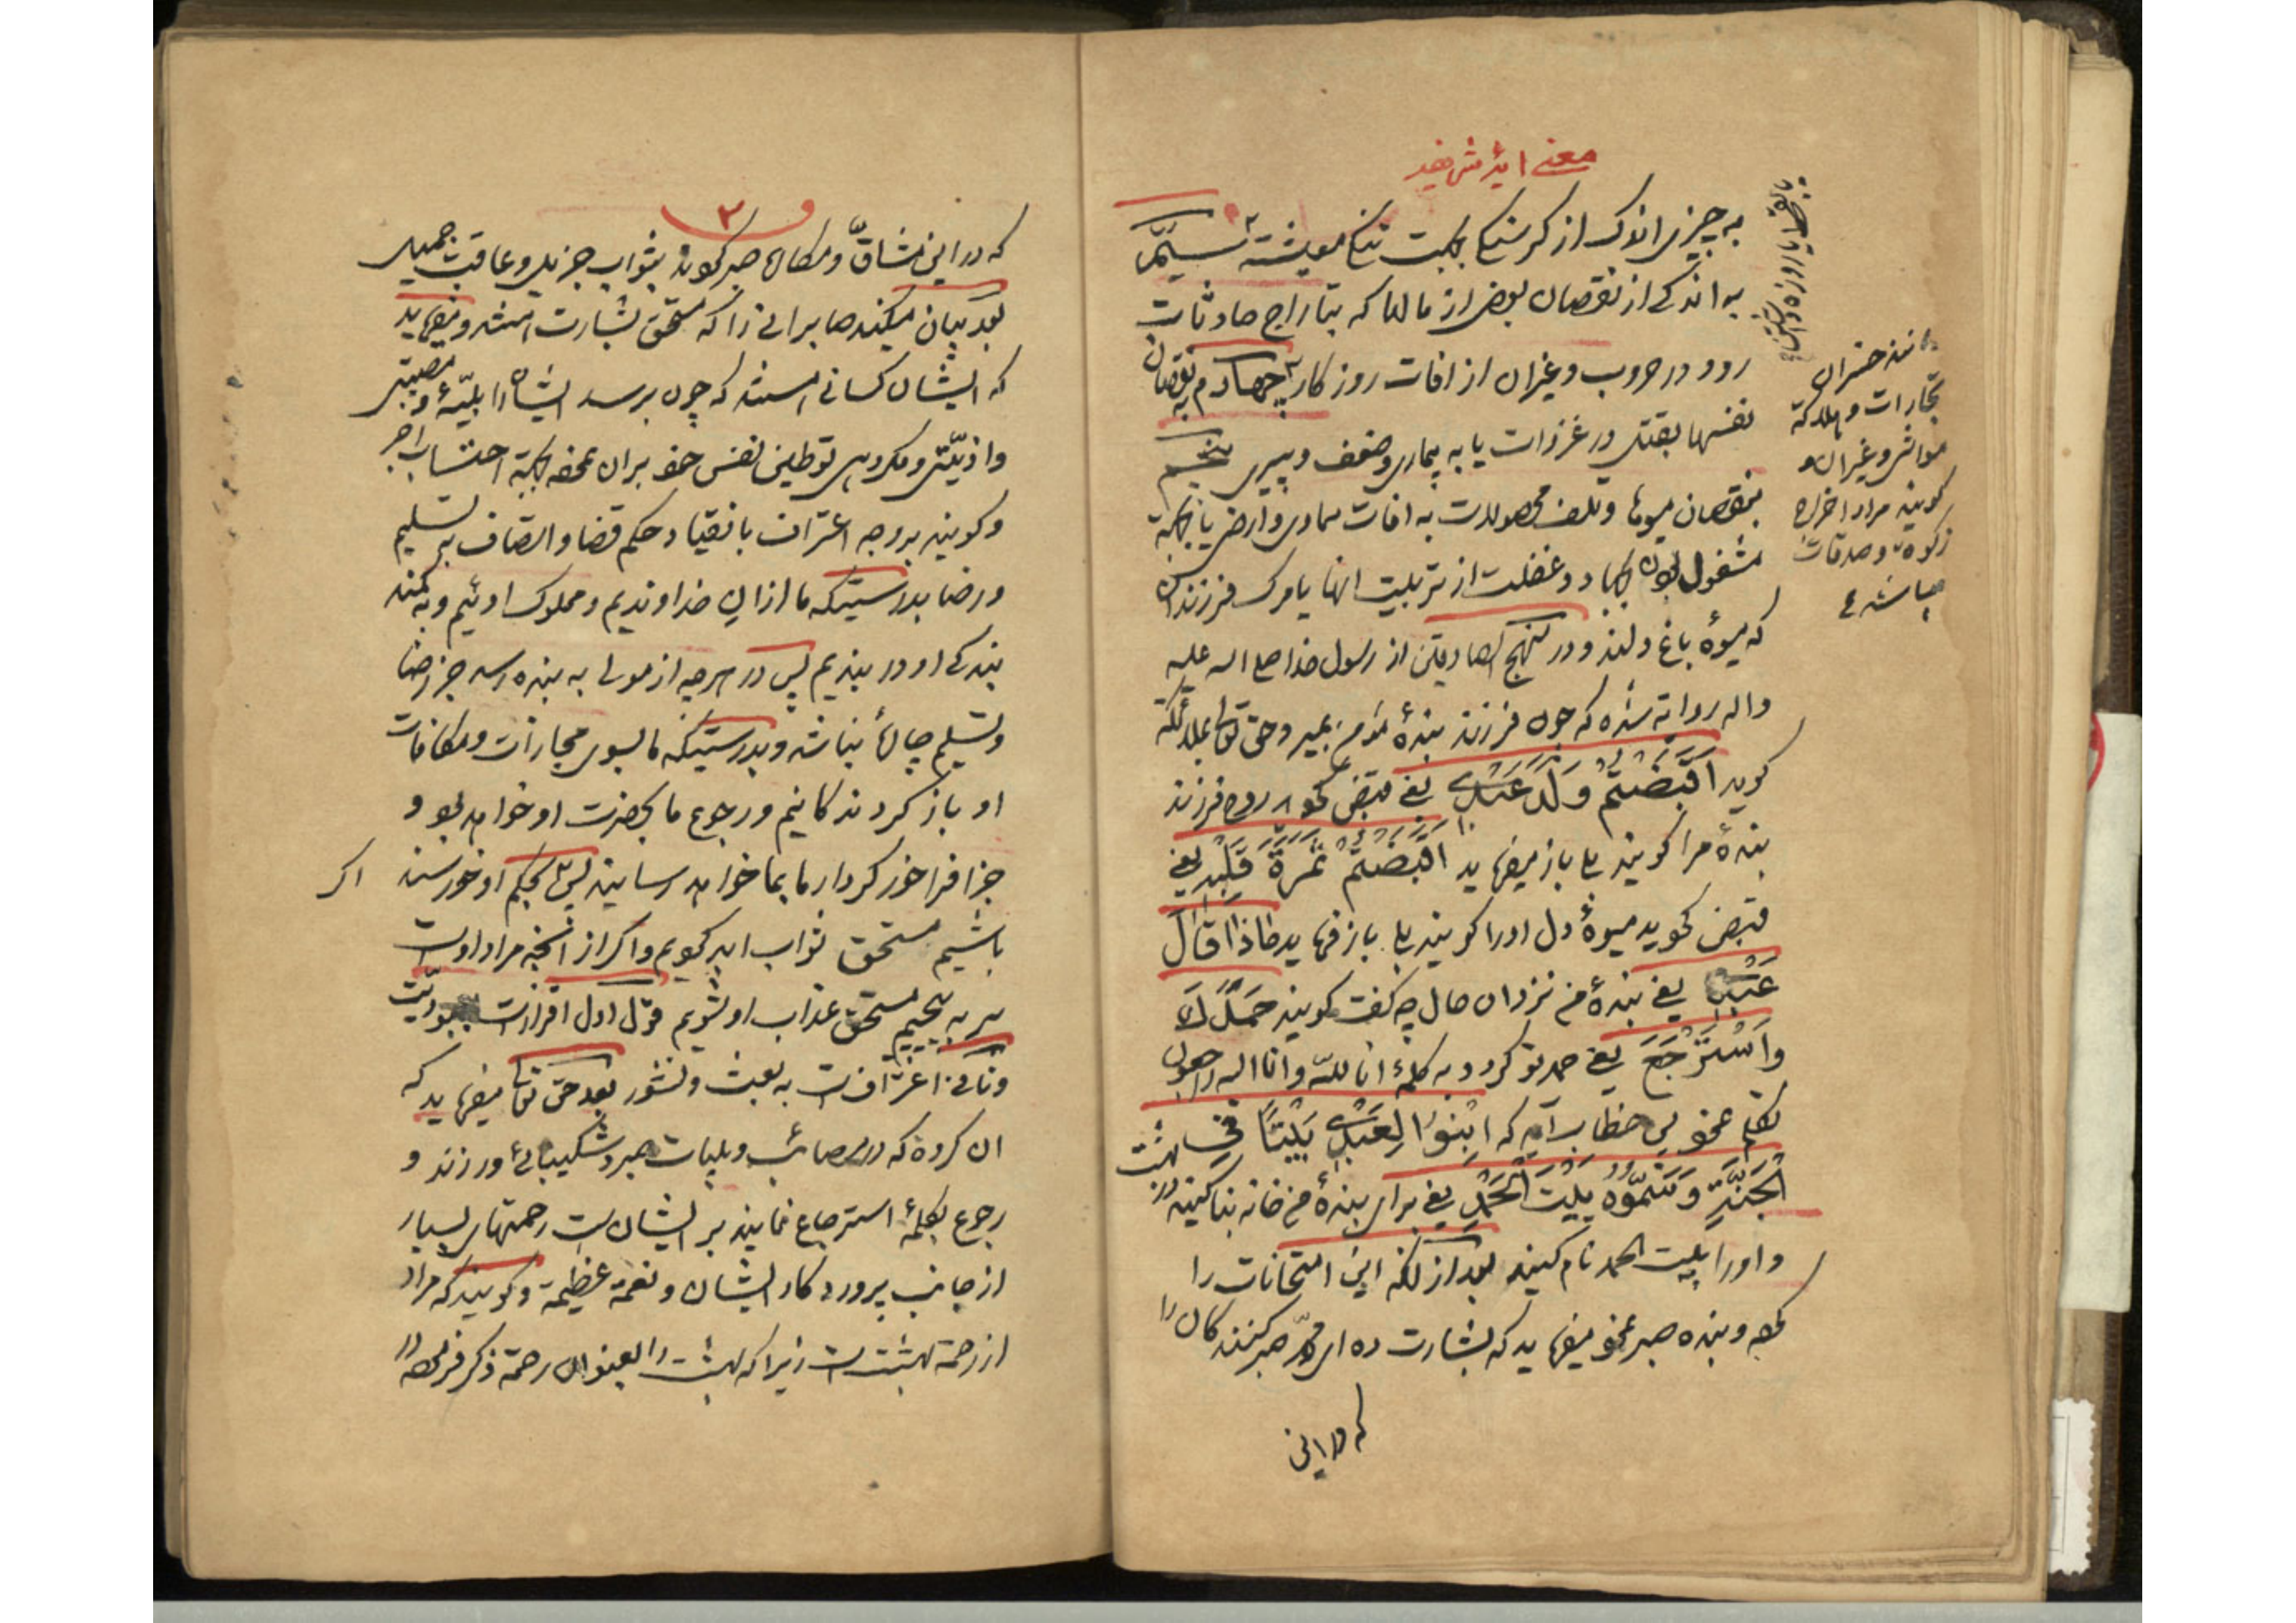 معنی ایهٔ شریفه
به چیزی اندک از کرسنکی بجهت تنکی معیشت سیّم
به اندکی از نقصان بعض از مالها که بتاراج حادثات
رود در حروب و غیر ان از افات روزکار چهارم به نقصان
نفسها بقتل در غزوات یا به بیماری و ضعف و پیری پنجم
بنقصان میوها و تلف محصولات به افات سماوی و ارضی یا بجهة
مشغول بودن بجهاد و غفلت از تربیت انها یا مرک فرزندان
که میوهٔ باغ دلند و در منهج الصادقین از رسول خدا صلی الله علیه
واله روایة شده که چون فرزند بندهٔ مؤمن بمیرد حق تعالی بملائکة
کوید اَقَبَضْتُمْ وَلَدَ عَبْدِی یعنی قبض نمودید روح فرزند
بندهٔ مرا کویند بلی باز میفرماید اَقَبَضْتُمْ ثَمَرَةَ قَلْبِهِ یعنی
قبض نمودید میوهٔ دل اورا کویند بلی باز فرماید مٰاذٰا قٰالَ
عَبْدِی یعنی بندهٔ من نزد ان حال چه کفت کویند حَمِدَکَ
وَاسْتَرْجَعَ یعنی حمد تو کرد و به کلمهٔ انا للّه وانا الیه راجعون
تکلم نمود پس خطاب آید که ابْنُوا لِعَبْدِی بَیْتًا فِی
الْجَنَّةِ وَسَمُّوهُ بَیْتَ الْحَمْدِ یعنی برای بندهٔ من خانه بنا کنید در بهشت
و اورا بیت الحمد نام کنید بعد از انکه این امتحانات را
نموده و بنده صبر نمود میفرماید که بشارت ده ای محمّد صبر کنندکان را
که در این
مانند خسران
تجارات و هلاکة
مواشی و غیر ان و
کویند مراد اخراج
زکوة و صدقات
میباشد
۲
که در این مشاقّ و مکاره صبر نمودند بثواب جزیل و عاقبت جمیل
بعد بیان میکند صابرانی را که مستحق بشارت هستند و میفرماید
که ایشان کسانی هستند که چون برسد ایشانرا بلیّهٔ و مصیبتی
و اذیّتی و مکروهی توطین نفس خود بران نموده بجهة احتساب اجر
و کویند بر وجه اعتراف بانقیاد حکم قضا و اتصاف به تسلیم
و رضا بدرستیکه ما از ان خداوندیم و مملوک اوئیم و به کمند
بندکی او در بندیم پس در هرچه از مولی به بنده رسد جز رضا
و تسلیم چارهٔ نباشد و بدرستیکه ما بسوی مجازات و مکافات
او بازکردندکانیم و رجوع ما بحضرت او خواهد بود و
جزا فراخور کردار ما بما خواهد رسانید پس اکر بحکم او خورسند
باشیم مستحق ثواب ابد کردیم و اکر از انچه مراد اوست
سر به پیچیم مستحق عذاب او شویم قول اول اقرارست بعبودیّت
و ثانی اعترافست به بعث و نشور بعد حق تعالی میفرماید که
ان کروه که در مصائب و بلیات صبر و شکیبائی ورزند و
رجوع بکلمهٔ استرجاع نمایند بر ایشانست رحمتهای بسیار
از جانب پروردکار ایشان و نعمة عظیمة و کویند که مراد
از رحمة بهشتست زیرا که بهشت را بعنوان رحمة ذکر فرموده